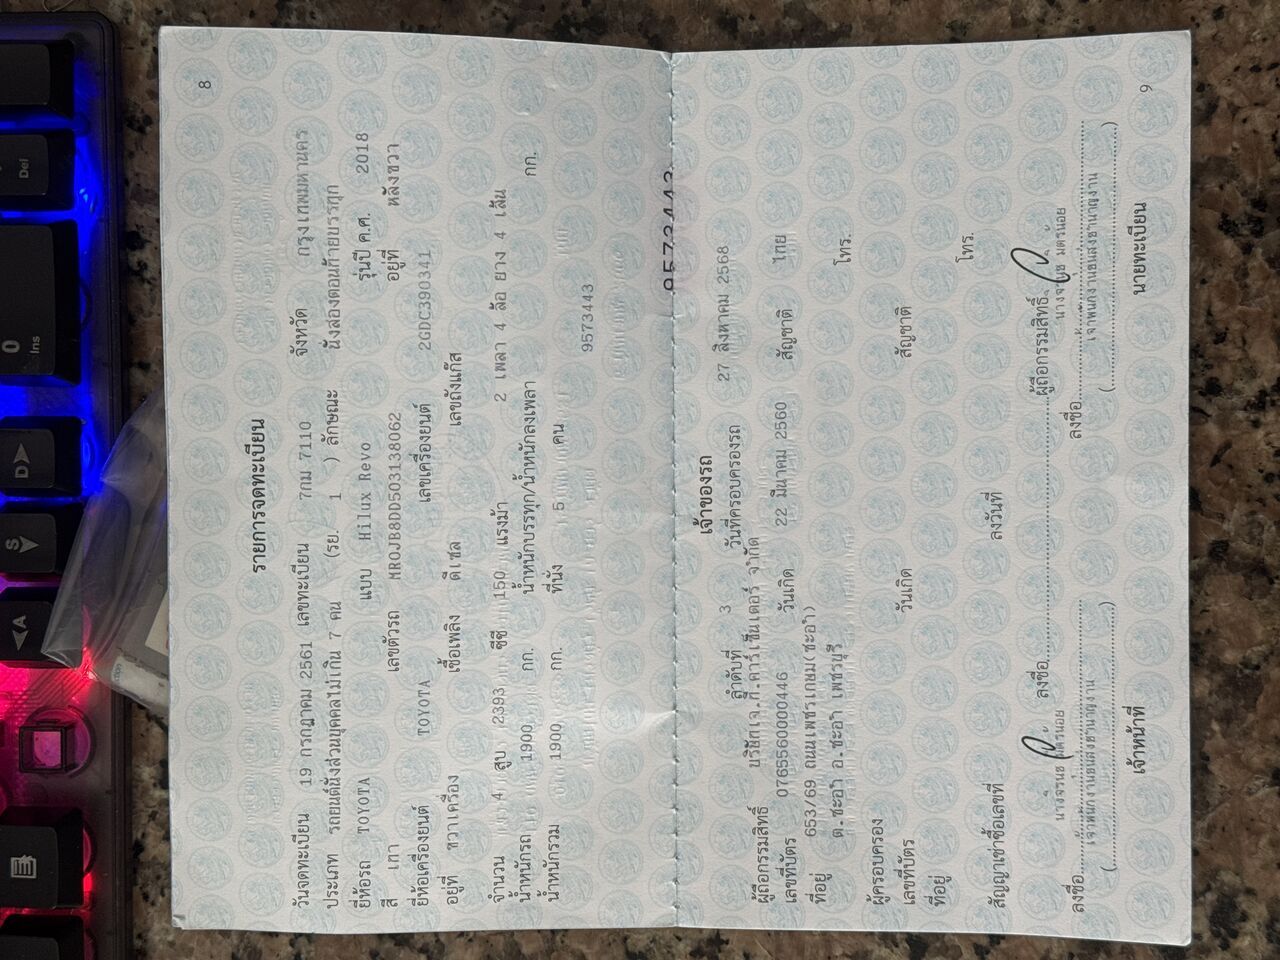 8
รายการจดทะเบียน
วันจดทะเบียน 19 กรกฎาคม 2561 เลขทะเบียน 7กม 7110 จังหวัด กรุงเทพมหานคร
ประเภท รถยนต์นั่งส่วนบุคคลไม่เกิน 7 คน (รย. 1 ) ลักษณะ นั่งสองตอนท้ายบรรทุก
ยี่ห้อรถ TOYOTA แบบ Hilux Revo รุ่นปี ค.ศ. 2018
สี เทา เลขตัวรถ MR0JB8DD503138062 อยู่ที่ หลังขวา
ยี่ห้อเครื่องยนต์ TOYOTA เลขเครื่องยนต์ 2GDC390341
อยู่ที่ ขวาเครื่อง เชื้อเพลิง ดีเซล เลขถังแก๊ส
จำนวน 4 สูบ 2393 ซีซี 150 แรงม้า 2 เพลา 4 ล้อ ยาง 4 เส้น
น้ำหนักรถ 1900 กก. น้ำหนักบรรทุก/น้ำหนักลงเพลา กก.
น้ำหนักรวม 1900 กก. ที่นั่ง 5 คน
9573443
9573443
เจ้าของรถ
ลำดับที่ 3 วันที่ครอบครองรถ 27 สิงหาคม 2568
ผู้ถือกรรมสิทธิ์ บริษัทเจ.ที.คาร์เซ็นเตอร์ จำกัด
เลขที่บัตร 0765560000446 วันเกิด 22 มีนาคม 2560 สัญชาติ ไทย
ที่อยู่ 653/69 ถนนเพชรเกษม(ชะอำ) โทร.
ต.ชะอำ อ.ชะอำ เพชรบุรี
ผู้ครอบครอง
เลขที่บัตร วันเกิด สัญชาติ
ที่อยู่ โทร.
สัญญาเช่าซื้อเลขที่ ลงวันที่
ลงชื่อ ผู้ถือกรรมสิทธิ์
ลงชื่อ ลงชื่อ
เจ้าหน้าที่ นายทะเบียน
9
Del
0
Ins
D
S
A